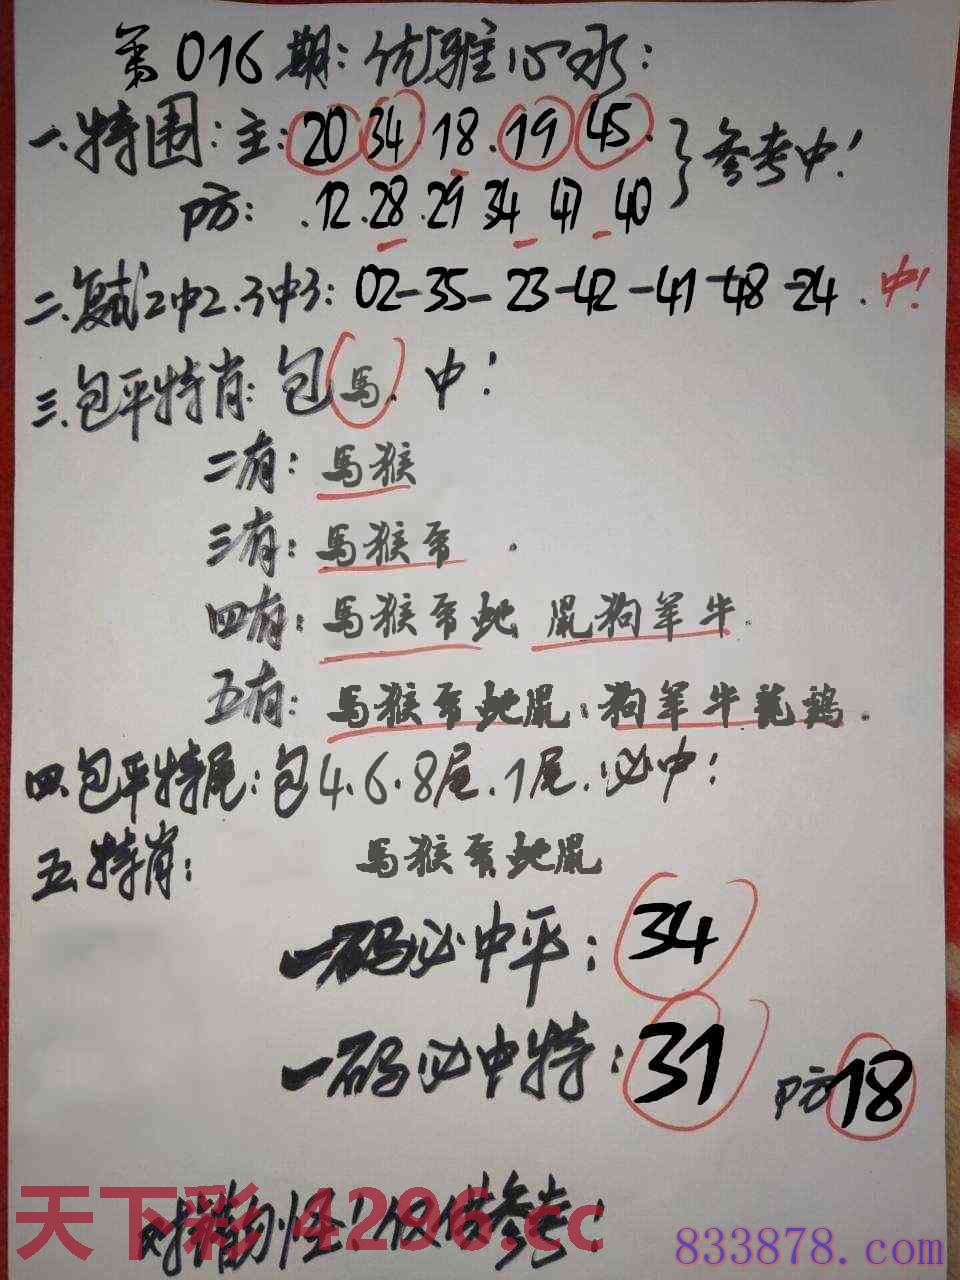 第016期:优雅心水:
一.特围:主:20 34.18.19.45.
防: .12.28.29 34 47 40
}参考中!
二.复试2中2.3中3:02-35-23-42-41-48-24.中!
三.包平特肖:包馬.中!
二有:馬猴
三有:馬猴
四有:馬猴 蛇 鼠狗羊牛.
五有:馬猴 蛇鼠:狗羊牛龍鷄.
四.包平特尾:包4.6.8尾.1尾.必中!
五.特肖: 馬猴 蛇鼠
一码必中平:34
一码必中特:31 防18
猜 怪!仅供参考!
天下彩 4296.cc
833878.com